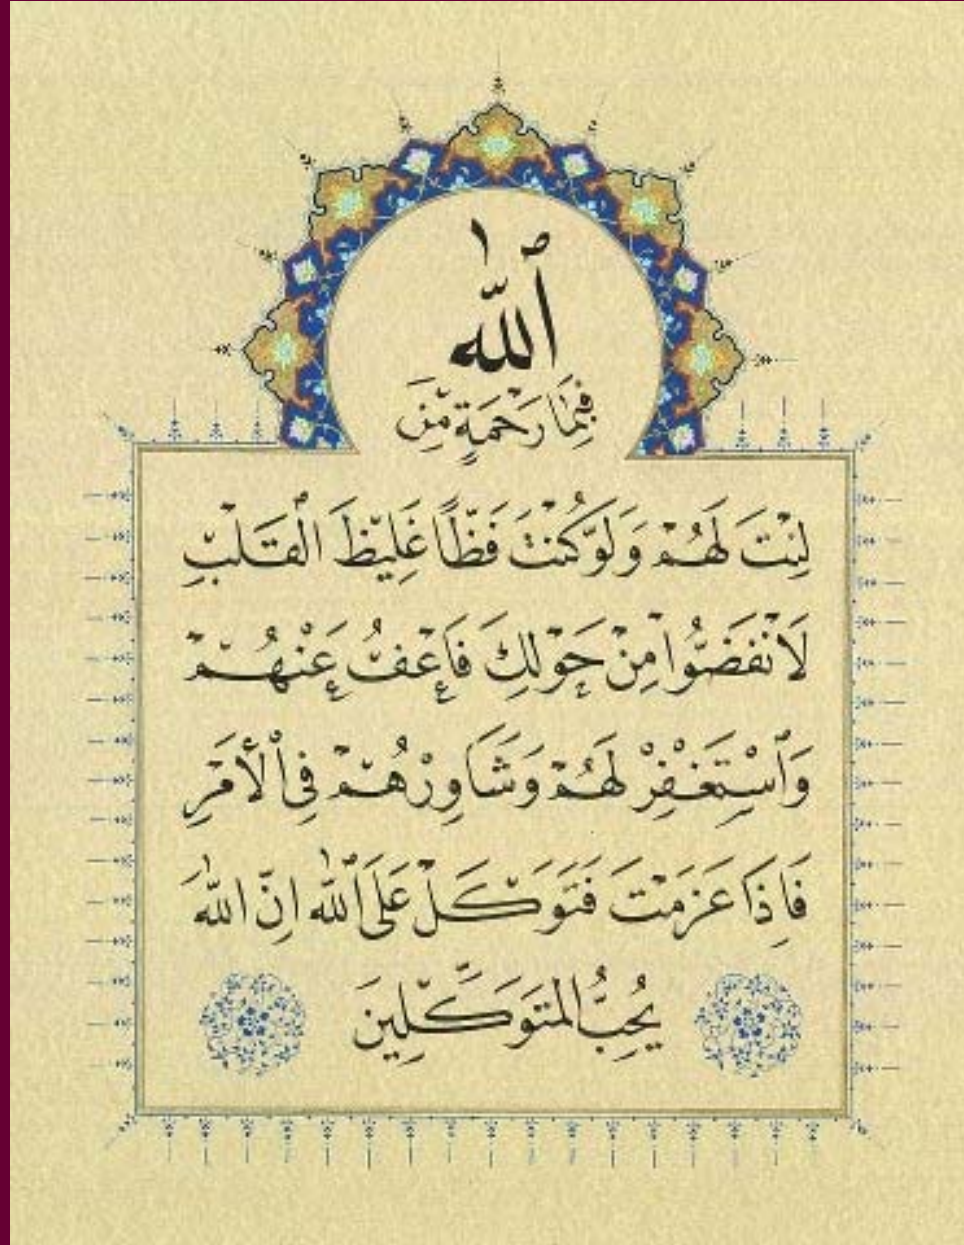 ٱللّٰه
فَبِمَا رَحْمَةٍ مِّنَ
لِنْتَ لَهُمْ وَلَوْ كُنْتَ فَظًّا غَلِيْظَ الْقَلْبِ
لَانْفَضُّوا مِنْ حَوْلِكَ فَاعْفُ عَنْهُمْ
وَاسْتَغْفِرْ لَهُمْ وَشَاوِرْهُمْ فِى الْأَمْرِ
فَاِذَا عَزَمْتَ فَتَوَكَّلْ عَلَى اللّٰه اِنَّ اللّٰهَ
يُحِبُّ الْمُتَوَكِّلِينَ